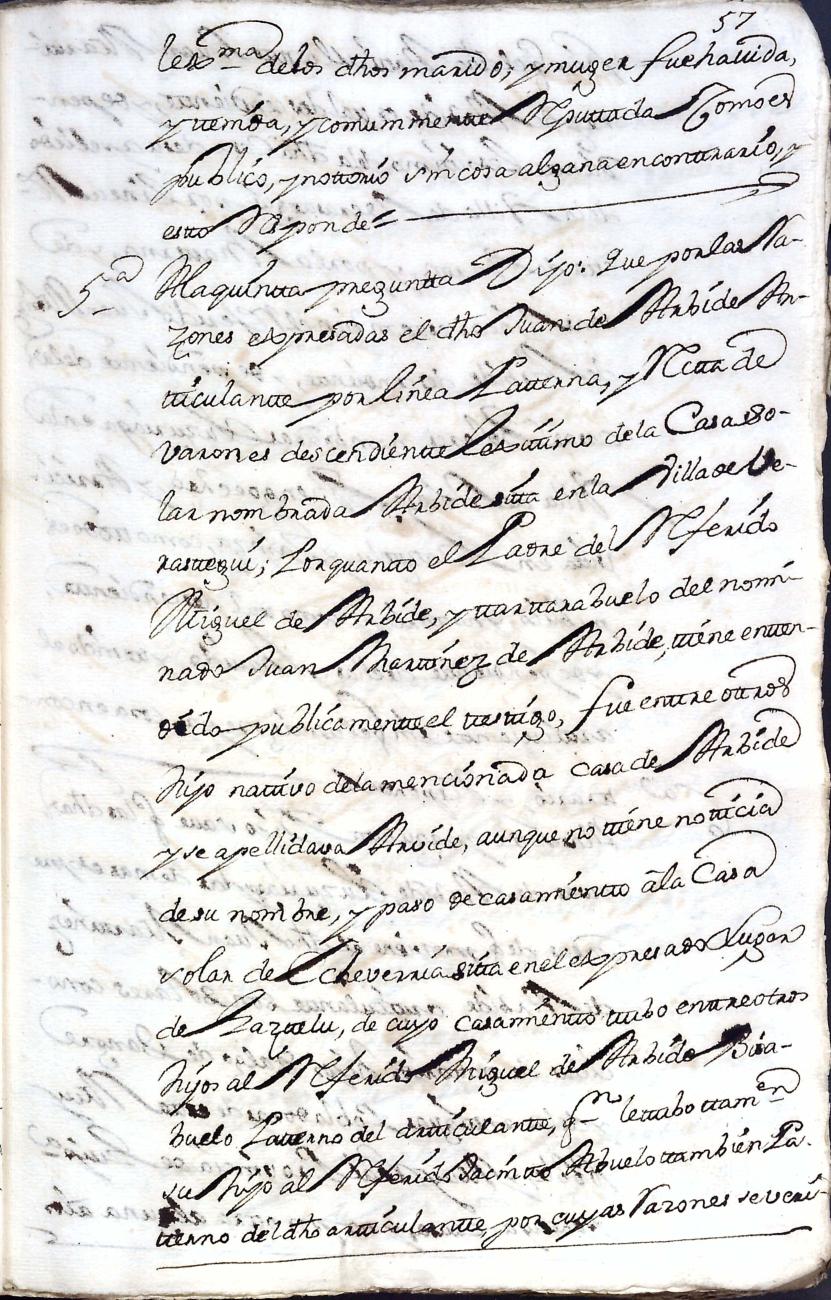 57
lexma de los dhos marido, y muger fue havida,
y tenida, y comunmentte Reputtada Como es
publico, y nottorio sin cosa alguna en conttrario, y
estto Responde=
5a A la quintta preguntta Dijo: Que por las Ra-
zones expresadas el dho Juan de Arbide Ar-
tticulantte por linea Patterna, y Rectta de
varones descendientte Lexittimo de la Casa So-
lar nombrada Arbide sitta en la Villa de Ve-
rasttegui; Porquantto el Padre del Referido
Miguel de Arbide, y ttarttarabuelo del nomi-
nado Juan Marttinez de Arbide, ttiene entten-
dido publicamentte el ttesttigo, fue enttre ottros
hijo nattivo de la mencionada casa de Arbide
y se apellidava Arvide, aunque no ttiene notticia
de su nombre, y paso de casamientto â la Casa
solar de Echeverria sitta en el expresado Lugar
de Gazttelu, de cuyo casamientto ttubo enttre ottros
hijos al Referido Miguel de Arbide Bisa-
buelo Patterno del artticulantte, qn le ttubo ttamen
su hijo al Referido Jacintto Abuelo ttambien Pa-
tterno del dho artticulantte, por cuyas Razones se veri-